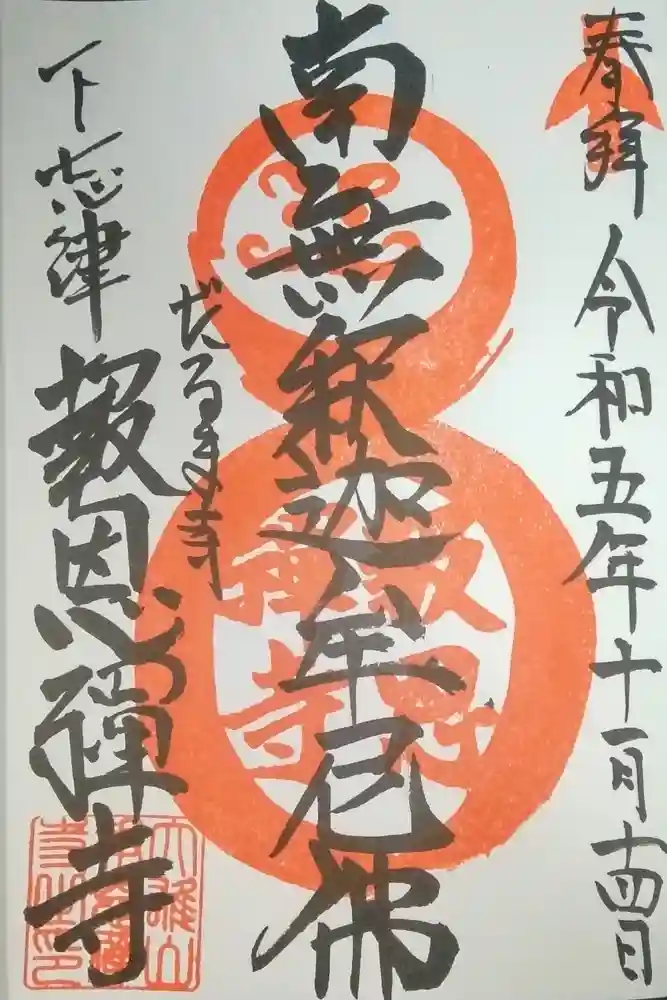 奉拝 令和五年十一月十四日
南無釈迦牟尼佛
だるま寺
下志津 報恩禅寺
報恩禅寺